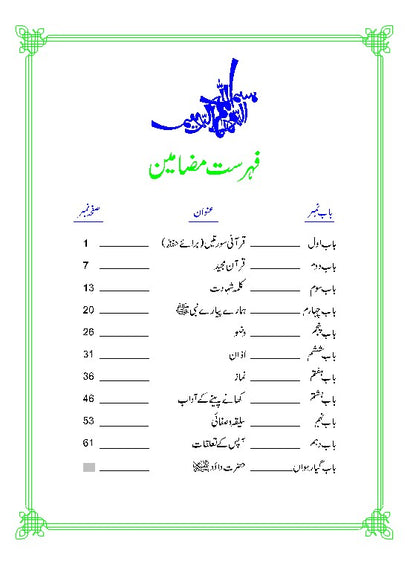 بسم اللہ الرحمن الرحیم
فہرست مضامین
باب نمبر عنوان صفحہ نمبر
باب اول قرآنی سورتیں (برائے حفظ) 1
باب دوم قرآن مجید 7
باب سوم کلمہ شہادت 13
باب چہارم ہمارے پیارے نبی ﷺ 20
باب پنجم وضو 26
باب ششم اذان 31
باب ہفتم نماز 36
باب ہشتم کھانے پینے کے آداب 46
باب نہم سلیقہ و صفائی 53
باب دہم آپس کے تعلقات 61
باب گیارہواں حضرت داؤد